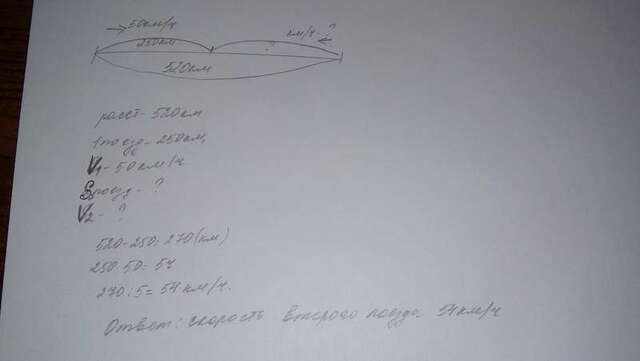 50км/ч
км/ч-?
250км
?
520км
расст-520км
1поезд-250км,
V1-50км/ч
Sпоезд-?
V2-?
520-250=270(км)
250:50=5ч
270:5=54км/ч.
Ответ: скорость второго поезда 54км/ч